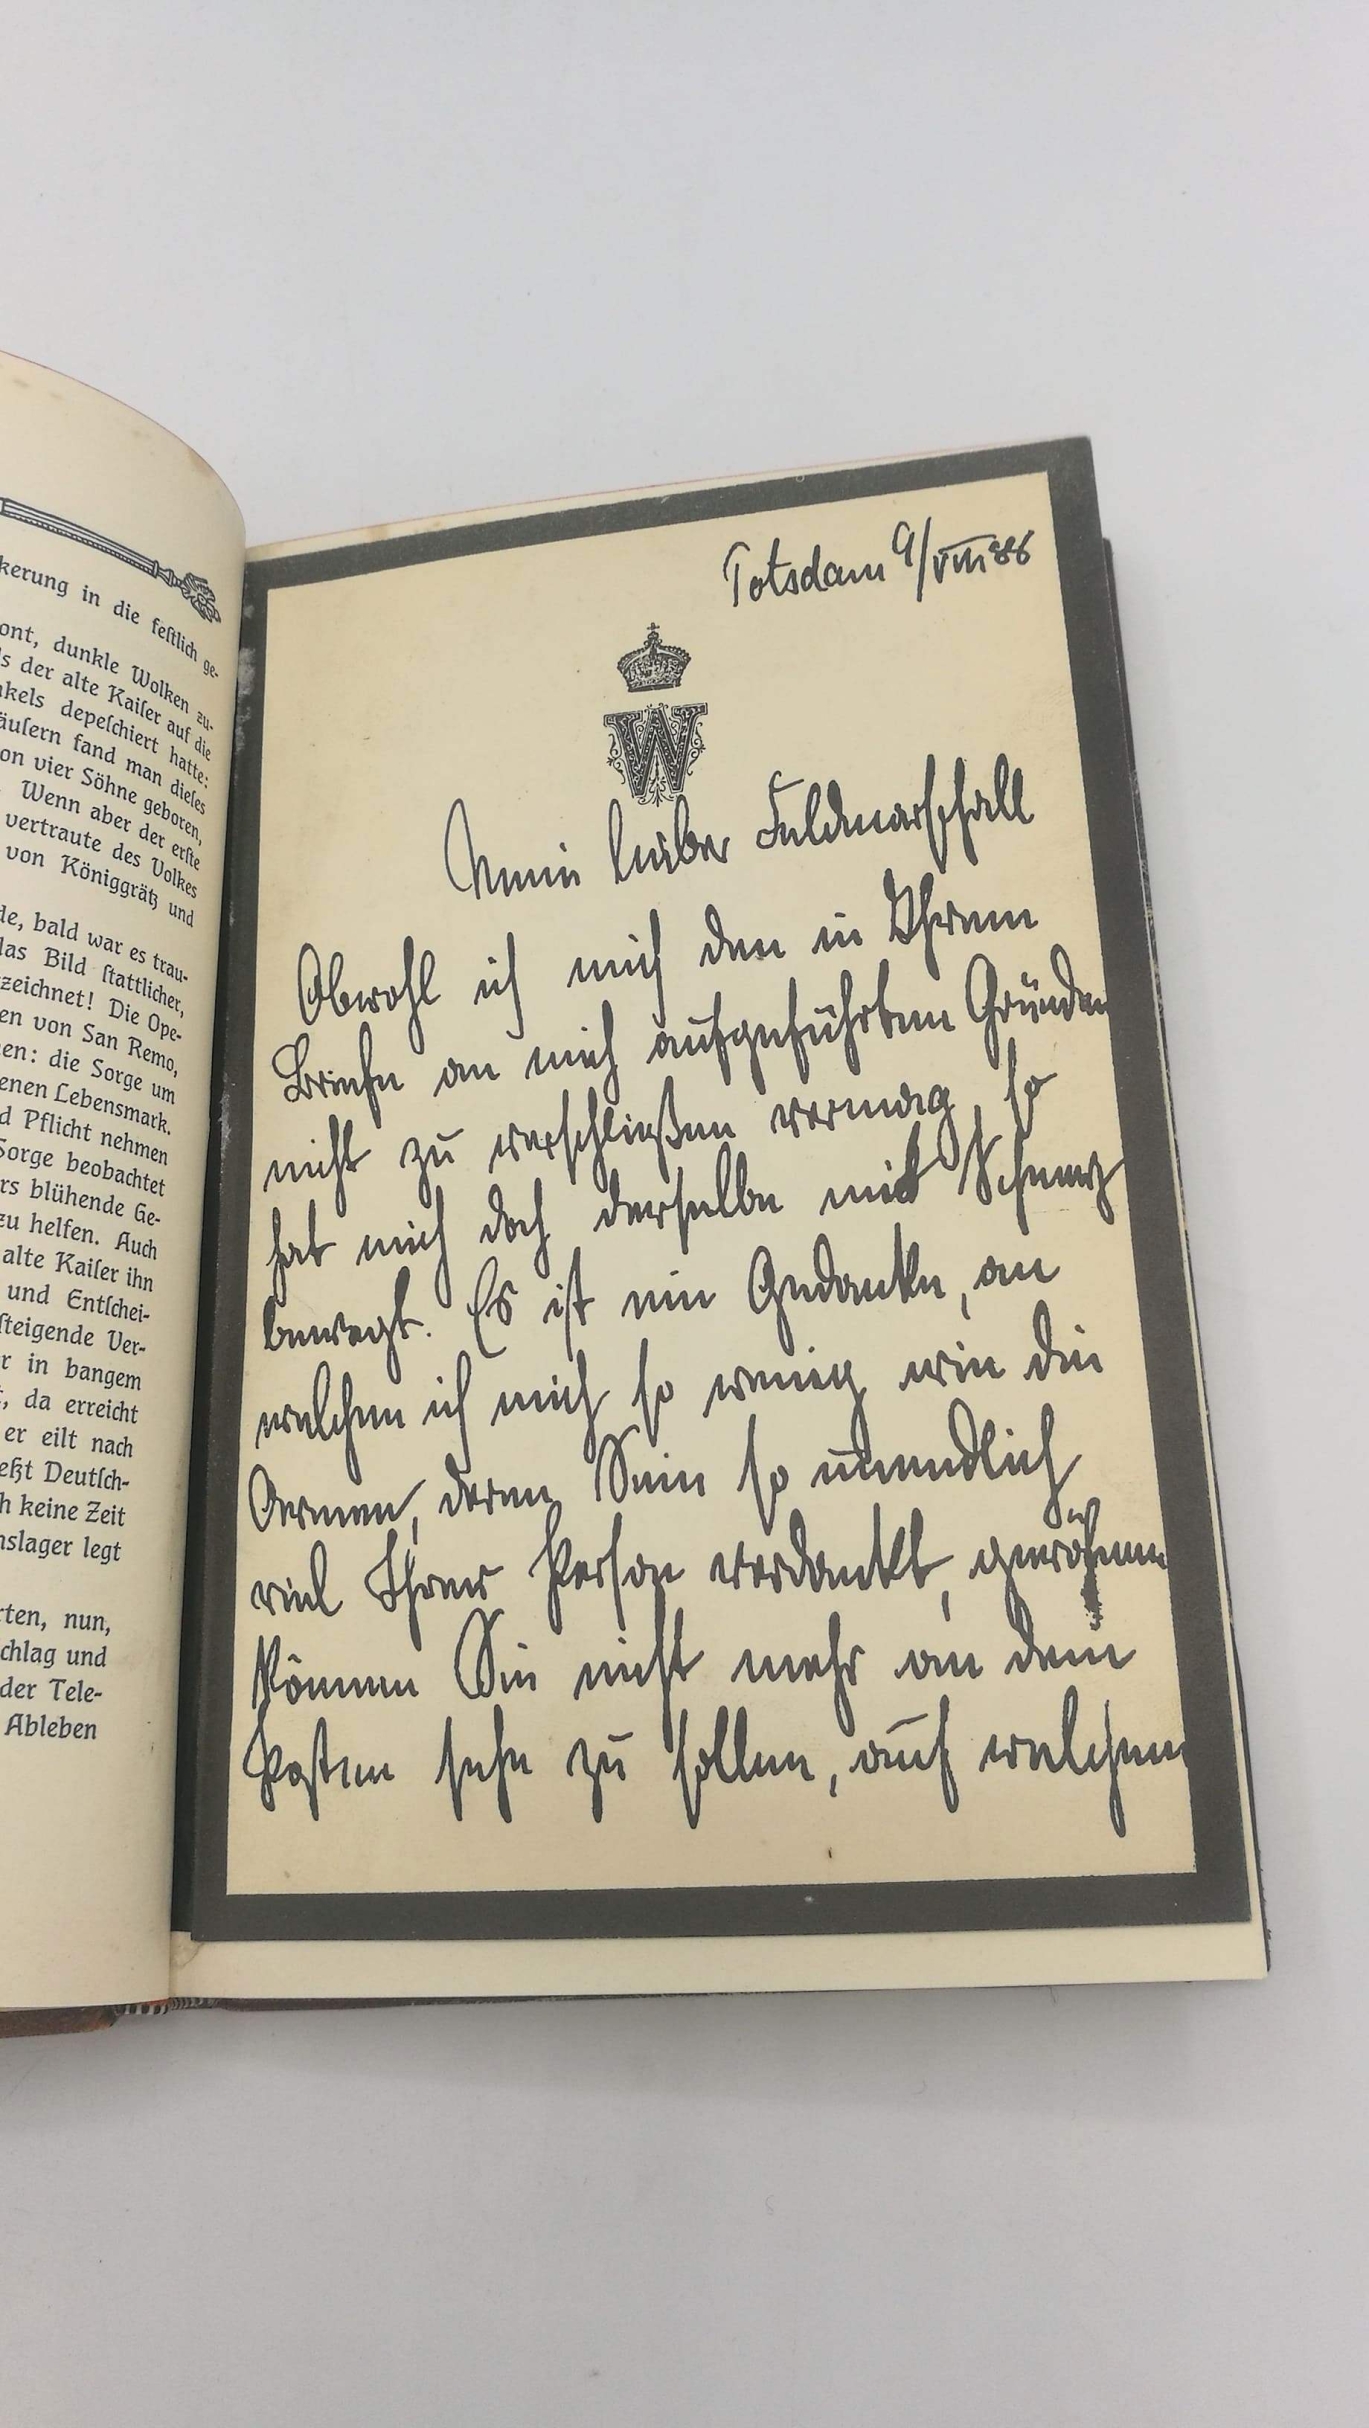 kerung in die feſtlich ge-
ont, dunkle Wolken zu-
s der alte Kaiſer auf die
nkels depeſchiert hatte:
äuſern fand man dieſes
on vier Söhne geboren,
Wenn aber der erſte
vertraute des Volkes
von Königgrätz und
de, bald war es trau-
das Bild ſtattlicher,
zeichnet! Die Ope-
en von San Remo,
en: die Sorge um
enen Lebensmark.
d Pflicht nehmen
Sorge beobachtet
rs blühende Ge-
zu helfen. Auch
alte Kaiſer ihn
und Entſchei-
ſteigende Ver-
r in bangem
t, da erreicht
er eilt nach
eßt Deutſch-
h keine Zeit
nslager legt
rten, nun,
chlag und
der Tele-
Ableben
Potsdam 9/VIII 88
W
Mein lieber Feldmarschall
Obwohl ich mich den in Ihrem
Briefe an mich aufgeführten Gründen
nicht zu verschließen vermag, so
hat mich doch derselbe mit Schmerz
bewegt. Es ist ein Gedanke, an
welchen ich mich so wenig wie die
Armee, deren Sein so unendlich
viel Ihrer Person verdankt, gewöhnen
können Sie nicht mehr an dem
Posten sehn zu sollen, auf welchem